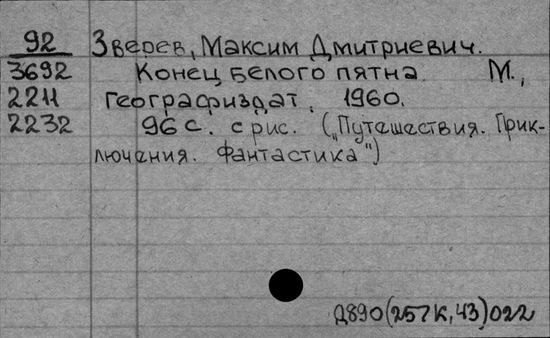 92 Зверев, Максим Дмитриевич.
3692 Конец белого пятна. М.,
2211 Географиздат, 1960.
2232 96 с. с рис. („Путешествия. Прик-
лючения. Фантастика")
Д890(257К,43)022